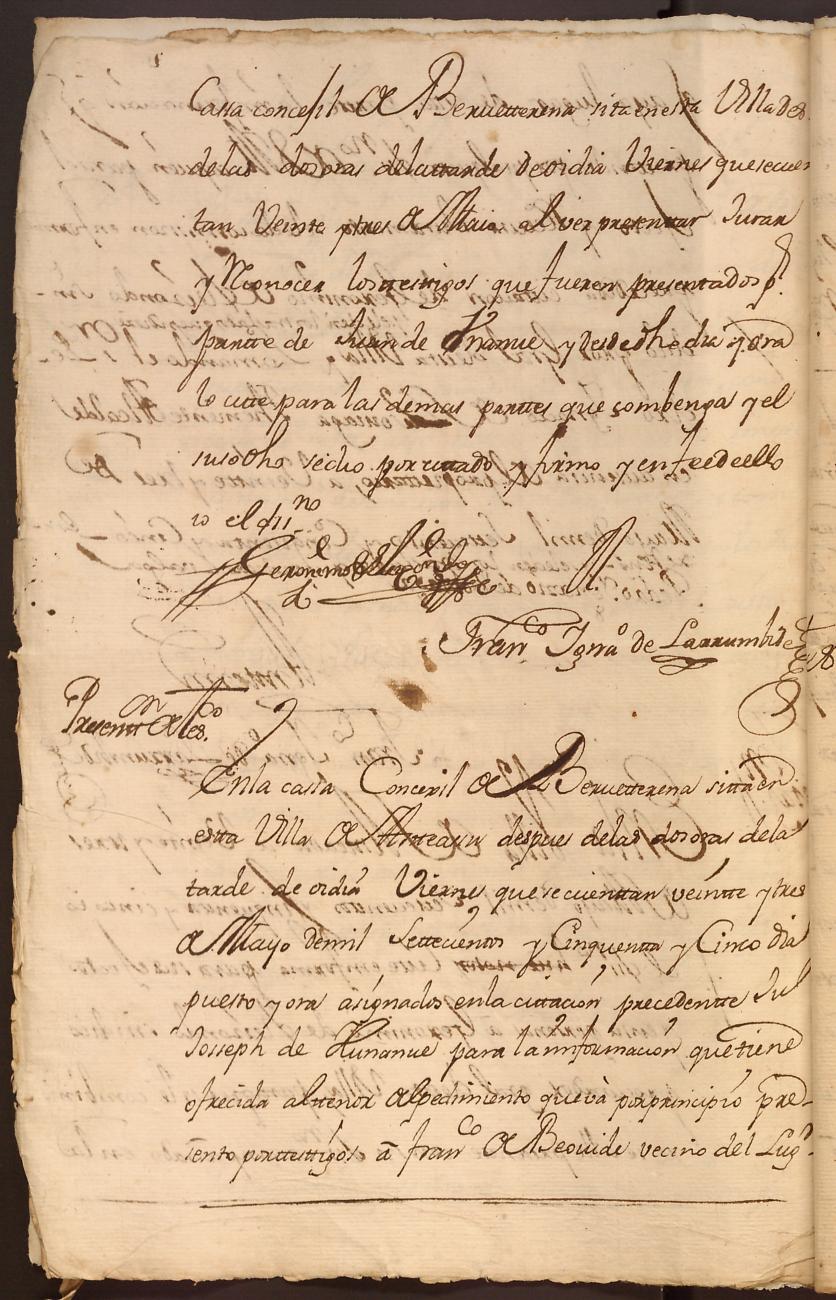 Cassa concejil de Berueterena sita en esta Villa des
de las dos oras de la ttarde de oi dia Viernes que se cuen
tan Veinte y tres de Maio al ver presenttar Jurar
y Reconocer los testigos que fueren presentados p.r
partte de Juan de Vnanue y desde dho dia y ora
lo citte para las demas parttes que combenga y el
susodho se dio por cittado y firmo y en fee de ello
io el ssno
Geronimo de
Franco Igno de Larrumbide
Presenttn de tes.
En la cassa Concexil de Berueterena sitta en
estta Villa de Artteaga despues de las dos oras de la
tarde de oi dia Viernes que se cuenttan veintte y tres
de Mayo de mil Settecientos y Cinquentta y Cinco dia
puesto y ora asignados en la cittacion precedentte
Josseph de Hunanue para la informacion que tiene
ofrecida al tenor del pedimiento que và por principio pre-
sento por testtigos à Franco de Beouide vecino del Lugr